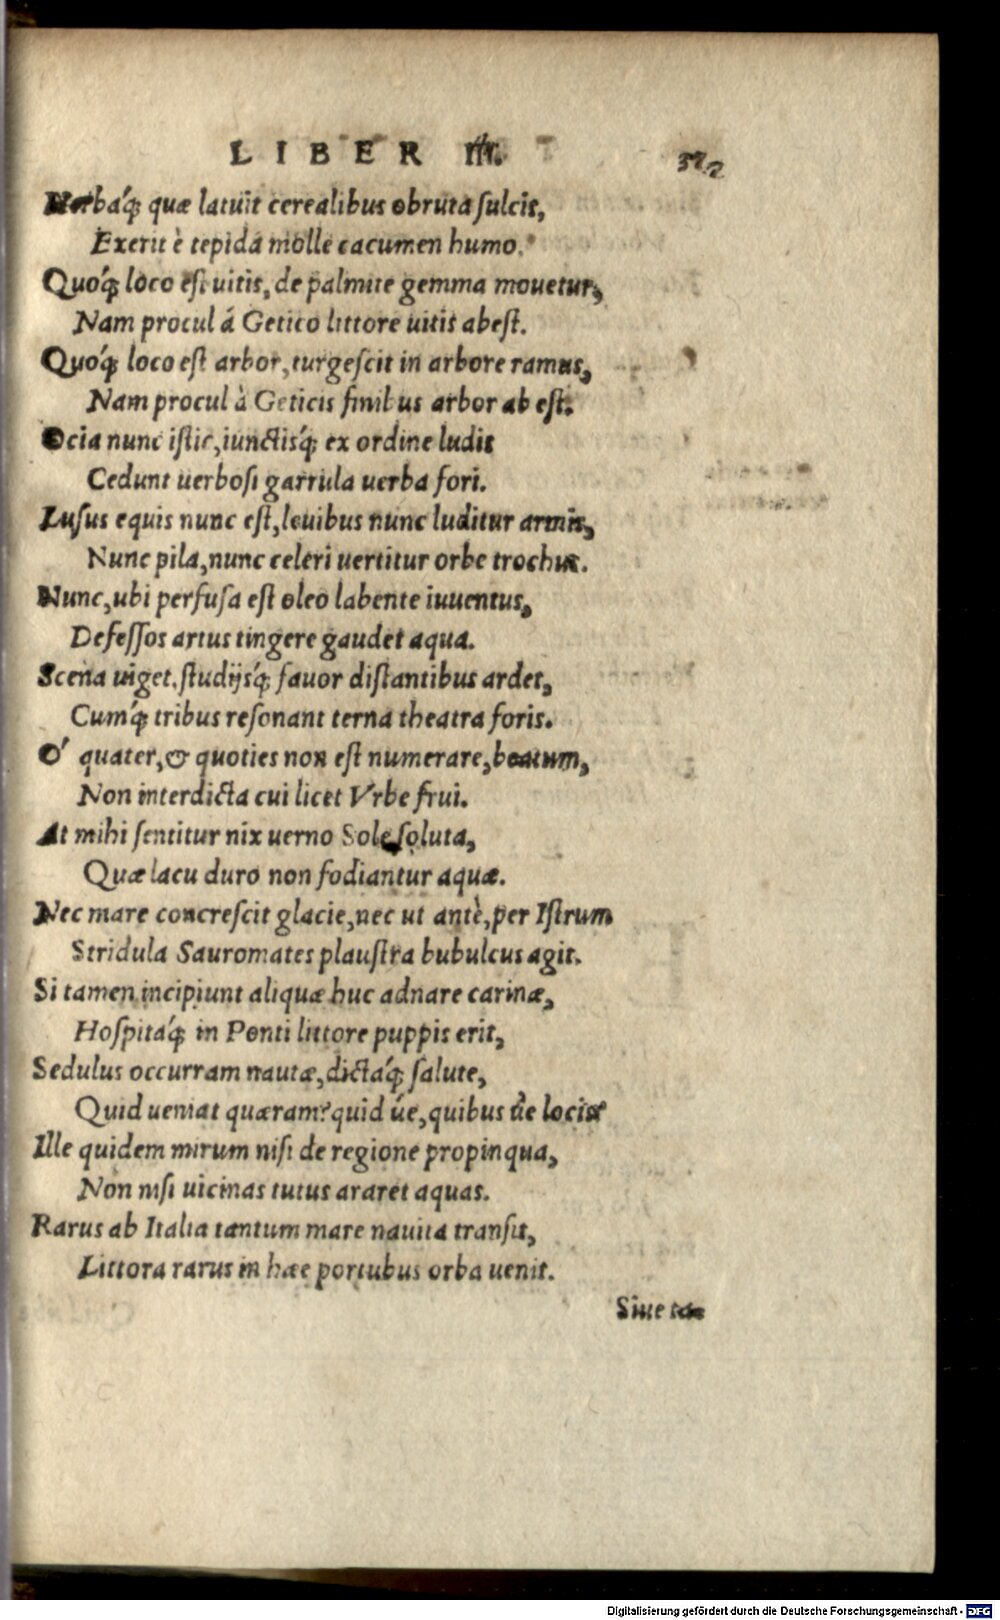 LIBER III.
Herbáq́; quæ latuit cerealibus obruta sulcis,
Exerit è tepida molle cacumen humo.
Quoq́; loco est uitis, de palmite gemma mouetur,
Nam procul á Getico littore uitis abest.
Quoq́; loco est arbor, turgescit in arbore ramus,
Nam procul à Geticis finibus arbor ab est.
Ocia nunc istic, iunctisq́; ex ordine ludis
Cedunt uerbosi garrula uerba fori.
Lusus equis nunc est, leuibus nunc luditur armis,
Nunc pila, nunc celeri uertitur orbe trochus.
Nunc, ubi perfusa est oleo labente iuuentus,
Defessos artus tingere gaudet aqua.
Scena uiget. studijsq́; fauor distantibus ardet,
Cumq́; tribus resonant terna theatra foris.
Ó quater, & quoties non est numerare, beatum,
Non interdicta cui licet Vrbe frui.
At mihi sentitur nix uerno Sole soluta,
Quæ lacu duro non fodiantur aquæ.
Nec mare concrescit glacie, nec ut antè, per Istrum
Stridula Sauromates plaustra bubulcus agit.
Si tamen incipiunt aliquæ huc adnare carinæ,
Hospitáq́; in Ponti littore puppis erit,
Sedulus occurram nautæ, dictáq́; salute,
Quid ueniat quæram? quid úe, quibus úe locis
Ille quidem mirum nisi de regione propinqua,
Non nisi uicinas tutus araret aquas.
Rarus ab Italia tantum mare nauita transit,
Littora rarus in hæc portubus orba uenit.
Siue
Digitalisierung gefördert durch die Deutsche Forschungsgemeinschaft - DFG